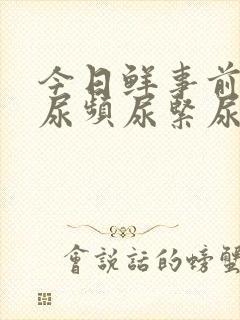 今日鲜事前
尿頻尿緊尿
會說話的螃蟹